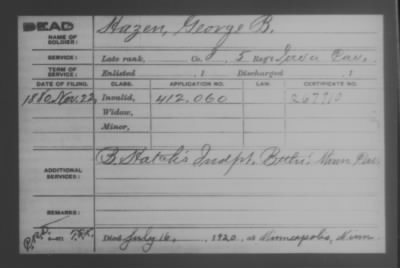 DEAD
NAME OF SOLDIER: Hazen, George B.
SERVICE: Late rank, Co. , 5 Reg't Iowa Cav.
TERM OF SERVICE: Enlisted , 1 Discharged , 1
DATE OF FILING. CLASS. APPLICATION NO. LAW. CERTIFICATE NO.
1880 Nov. 22 Invalid, 412.060
Widow,
Minor,
ADDITIONAL SERVICES: B. Hatch's Indpt. Battn. Minn Cav.
REMARKS:
Died July 16, 1920, at Minneapolis, Minn.